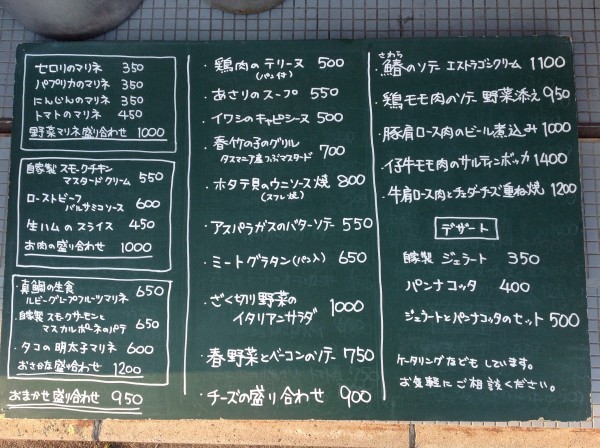 セロリのマリネ 350
パプリカのマリネ 350
にんじんのマリネ 350
トマトのマリネ 450
野菜マリネ盛り合わせ 1000
自家製 スモークチキン
マスタードクリーム 550
ローストビーフ
バルサミコソース 600
生ハムのスライス 450
お肉の盛り合わせ 1000
真鯛の生食
ルビーグレープフルーツマリネ 650
自家製 スモークサーモンと
マスカルポーネのパテ 650
・タコの明太子マリネ 600
おさかな盛り合わせ 1200
おまかせ盛り合わせ 950
・鶏肉のテリーヌ 500
(パン付)
・あさりのスープ 550
・イワシのキャピシーヌ 500
・春竹の子のグリル
タスマニア産つぶマスタード 700
・ホタテ貝のウニソース焼 800
(スフレ焼)
・アスパラガスのバターソテー 550
・ミートグラタン(パン入) 650
・ざく切り野菜の
イタリアンサラダ 1000
・春野菜とベーコンのソテー 750
・チーズの盛り合わせ 900
さわら
・鰆のソテー エストラゴンクリーム 1100
・鶏モモ肉のソテー 野菜添え 950
・豚肩ロース肉のビール煮込み 1000
・仔牛モモ肉のサルティンボッカ 1400
・牛肩ロース肉とチェダーチーズ重ね焼 1200
デザート
自家製 ジェラート 350
パンナコッタ 400
ジェラートとパンナコッタのセット 500
ケータリングなども しています。
お気軽に ご相談ください。